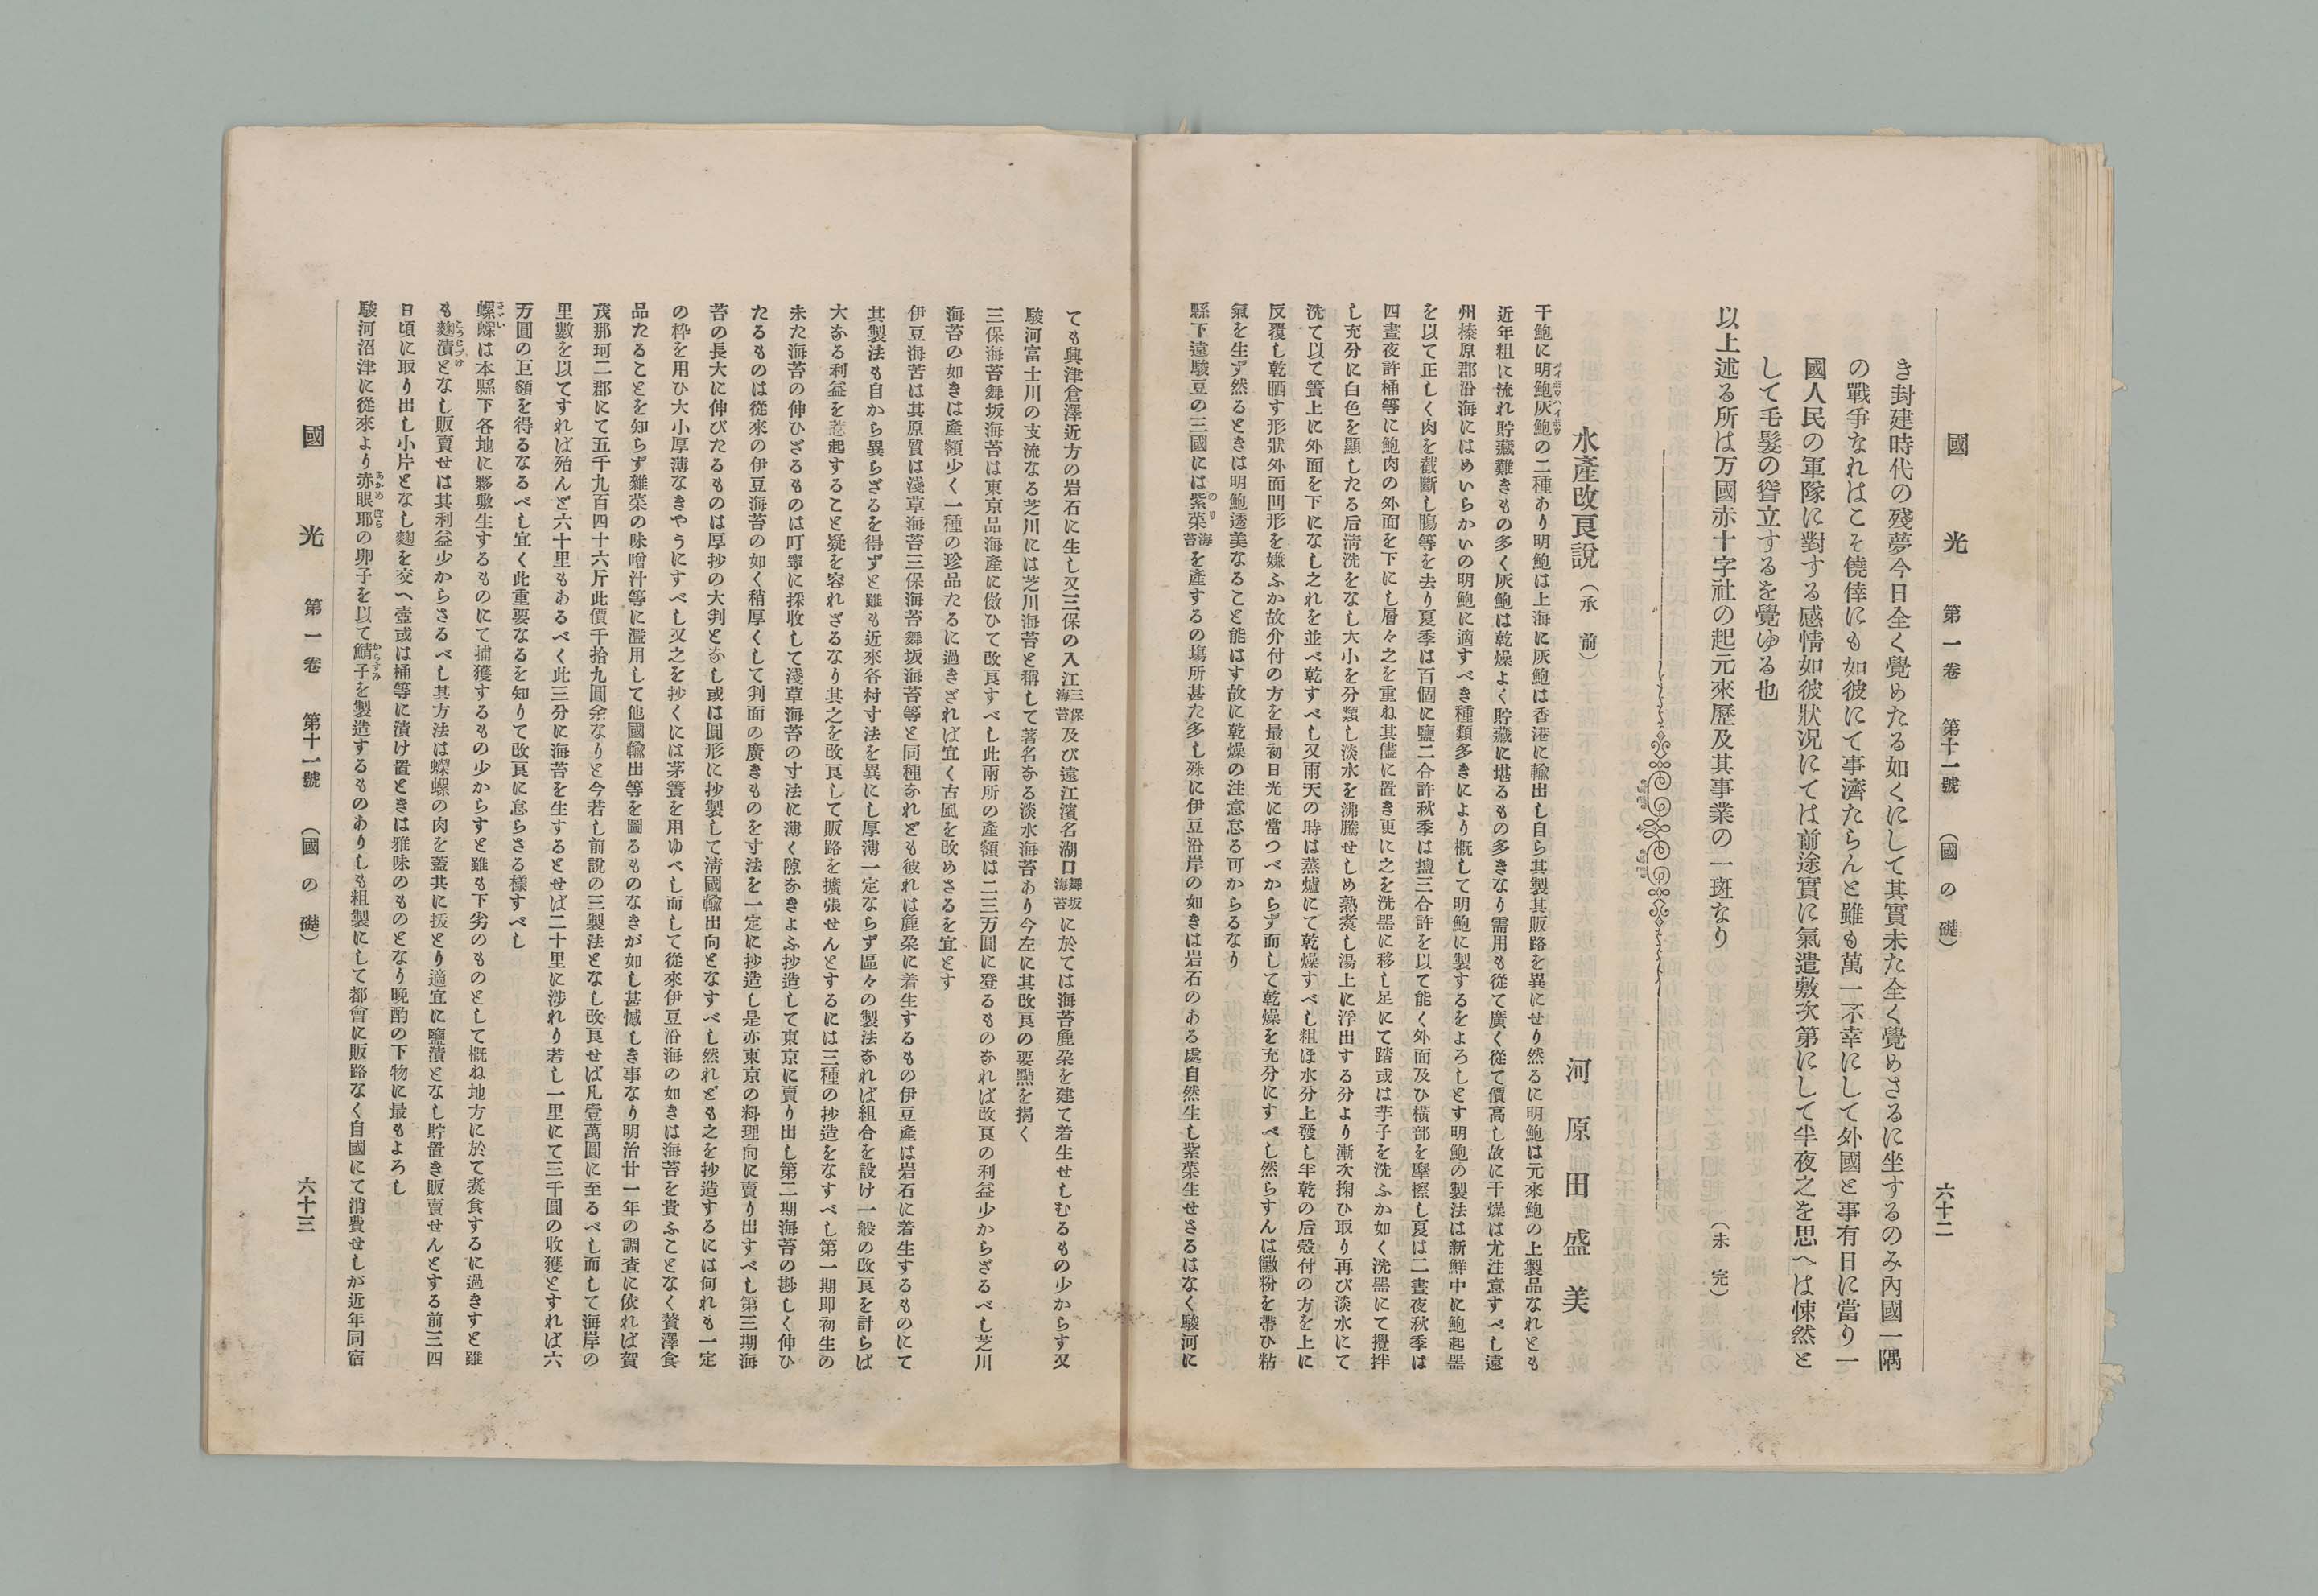 國光 第一卷 第十一號 （國の礎） 六十二
き封建時代の殘夢今日全く覺めたる如くにして其實未た全く覺めさるに坐するのみ內國一隅
の戰爭なれはこそ僥倖にも如彼にて事濟たらんと雖も萬一不幸にして外國と事有日に當り一
國人民の軍隊に對する感情如彼狀況にては前途實に氣遣敷次第にして半夜之を思へは悚然と
して毛髮の聳立するを覺ゆる也
以上述る所は万國赤十字社の起元來歷及其事業の一斑なり （未完）
水產改良說（承前） 河原田盛美
干鮑に明鮑灰鮑の二種あり明鮑は上海に灰鮑は香港に輸出し自ら其製其販路を異にせり然るに明鮑は元來鮑の上製品なれとも
近年粗に流れ貯藏難きもの多く灰鮑は乾燥よく貯藏に堪るもの多きなり需用も從て廣く從て價高し故に干燥は尤注意すべし遠
州榛原郡沿海にはめいらかいの明鮑に適すべき種類多きにより概して明鮑に製するをよろしとす明鮑の製法は新鮮中に鮑起器
を以て正しく肉を截斷し膓等を去り夏季は百個に鹽二合許秋季は鹽三合許を以て能く外面及ひ橫部を摩擦し夏は二晝夜秋季は
四晝夜許桶等に鮑肉の外面を下にし層々之を重ね其儘に置き更に之を洗器に移し足にて踏或は芋子を洗ふか如く洗器にて攪拌
し充分に白色を顯したる后淸洗をなし大小を分類し淡水を沸騰せしめ熟煮し湯上に浮出する分より漸次掬ひ取り再び淡水にて
洗て以て簀上に外面を下になし之れを並べ乾すべし又雨天の時は蒸爐にて乾燥すべし粗ほ水分上發し半乾の后殼付の方を上に
反覆し乾晒す形狀外面凹形を嫌ふか故介付の方を最初日光に當つべからず而して乾燥を充分にすべし然らすんは黴粉を帶ひ粘
氣を生ず然るときは明鮑透美なること能はす故に乾燥の注意怠る可からるなり
縣下遠駿豆の三國には紫菜海苔を產するの塲所甚た多し殊に伊豆沿岸の如きは岩石のある處自然生し紫菜生せさるはなく駿河に
ても興津倉澤近方の岩石に生し又三保の入江三保海苔及び遠江濱名湖口舞坂海苔に於ては海苔麁朶を建て着生せしむるもの少からす又
駿河富士川の支流なる芝川には芝川海苔と稱して著名なる淡水海苔あり今左に其改良の要點を揭く
三保海苔舞坂海苔は東京品海產に傚ひて改良すべし此兩所の產額は二三万圓に登るものなれば改良の利益少からざるべし芝川
海苔の如きは產額少く一種の珍品たるに過きざれば宜く古風を改めさるを宜とす
伊豆海苔は其原質は淺草海苔三保海苔舞坂海苔等と同種なれども彼れは麁朶に着生するもの伊豆產は岩石に着生するものにて
其製法も自から異らざるを得ずと雖も近來各村寸法を異にし厚薄一定ならず區々の製法なれば組合を設け一般の改良を計らば
大なる利益を惹起すること疑を容れざるなり其之を改良して販路を擴張せんとするには三種の抄造をなすべし第一期即初生の
未た海苔の伸ひざるものは叮寧に採收して淺草海苔の寸法に薄く隙なきよふ抄造して東京に賣り出し第二期海苔の尠しく伸ひ
たるものは從來の伊豆海苔の如く稍厚くして判面の廣きものを寸法を一定に抄造し是亦東京の料理向に賣り出すべし第三期海
苔の長大に伸びたるものは厚抄の大判となし或は圓形に抄製して淸國輸出向となすべし然れども之を抄造するには何れも一定
の枠を用ひ大小厚薄なきやうにすべし又之を抄くには茅簀を用ゆべし而して從來伊豆沿海の如きは海苔を貴ふことなく贅澤食
品たることを知らず雜菜の味噌汁等に濫用して他國輸出等を圖るものなきが如し甚憾しき事なり明治廿一年の調查に依れば賀
茂那珂二郡にて五千九百四十六斤此價千拾九圓余なりと今若し前說の三製法となし改良せば凡壹萬圓に至るべし而して海岸の
里數を以てすれば殆んど六十里もあるべく此三分に海苔を生するとせば二十里に涉れり若し一里にて三千圓の收獲とすれば六
万圓の巨額を得るなるべし宜く此重要なるを知りて改良に怠らさる樣すべし
螺蠑は本縣下各地に夥敷生するものにて捕獲するもの少からすと雖も下劣のものとして概ね地方に於て煑食するに過きすと雖
も麴漬となし販賣せは其利益少からさるべし其方法は蠑螺の肉を蓋共に拔とり適宜に鹽漬となし貯置き販賣せんとする前三四
日頃に取り出し小片となし麴を交へ壺或は桶等に漬け置ときは雅味のものとなり晩酌の下物に最もよろし
駿河沼津に從來より赤眼耶の卵子を以て鯔子を製造するものありしも粗製にして都會に販路なく自國にて消費せしが近年同宿
國光 第一卷 第十一號 （國の礎） 六十三